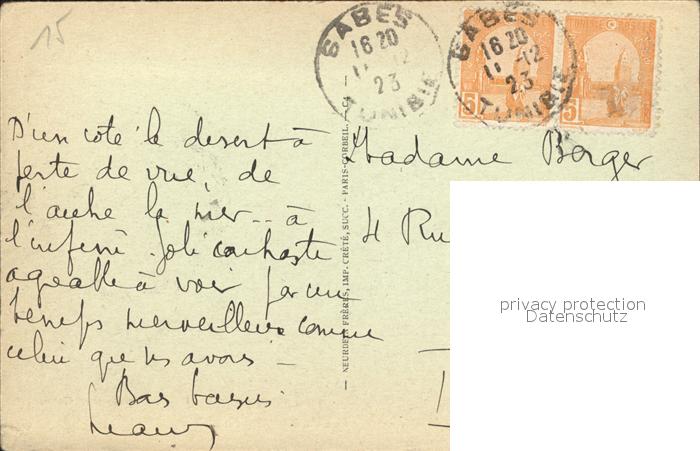 15
GABES
16 20
11 -12
23
TUNISIE
GABES
16 20
11 -12
23
TUNISIE
5
5
D'un coté le desert à
perte de vue, de
l'autre la mer.. à
l'infini. Joli contraste
agréable à voir par un
temps merveilleux comme
celui que ns avons –
Bons baisers
Madame Berger
4 Ru
— NEURDEIN FRÈRES, IMP. CRÉTÉ, SUCC. - PARIS-CORBEIL.
privacy protection
Datenschutz